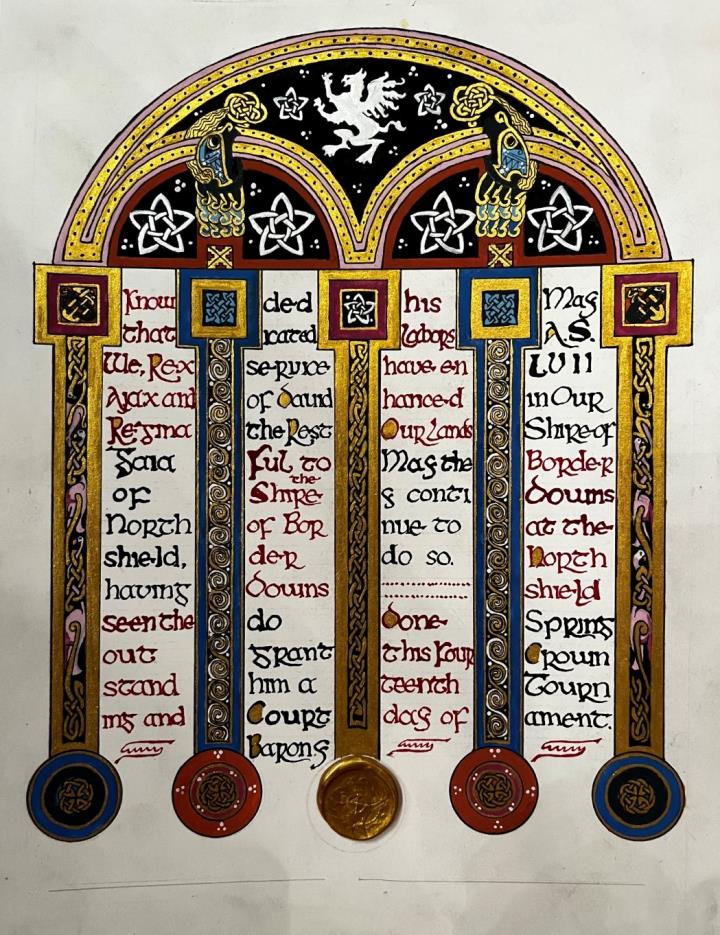 Know
that
We, Rex
Ajax and
Regina
Gaia
of
North
shield,
having
seen the
out
stand
ing and
ded
icated
service
of David
the Rest
ful to
the
Shire
of Bor
der
downs
do
grant
him a
Court
Barony
his
labors
have en
hanced
Our Lands
May the
y conti
nue to
do so.
Done
this Four
teenth
day of
May
A.S.
LVII
in Our
Shire of
Border
downs
at the
North
shield
Spring
Crown
Tourn
ament.